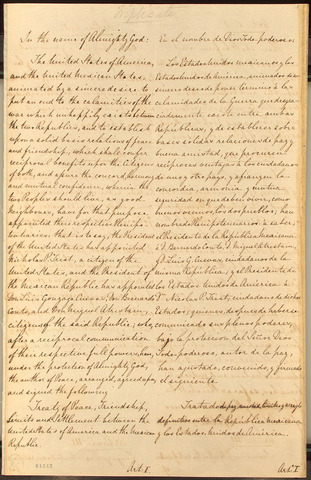 In the name of Almighty God:
The United States of America,
and the United Mexican States,
animated by a sincere desire to
put an end to the calamities of the
war which unhappily exists between
the two Republics, and to establish
upon a solid basis relations of peace
and friendship, which shall confer
reciprocal benefits upon the Citizens
of both, and assure the concord, harmony
and mutual confidence, wherein the
two Peoples should live, as good
Neighbours, have for that purpose
appointed their respective Plenipo-
tentiaries: that is to say, the President
of the United States has appointed
Nicholas P. Trist, a citizen of the
United States, and the President of
the Mexican Republic has appointed
Don Luis Gonzaga Cuevas, Don Bernardo
Couto, and Don Miguel Atristain,
citizens of the said Republic; who,
after a reciprocal communication
of their respective full powers, have,
under the protection of Almighty God,
the author of Peace, arranged, agreed upon,
and signed the following
Treaty of Peace, Friendship,
Limits and Settlement between the
United States of America and the Mexican
Republic.
Art: I.
En el nombre de Dios Todopoderoso:
Los Estados Unidos mexicanos y los
Estados Unidos de América, animados de un
sincero deseo de poner término á las
calamidades de la Guerra que desgra-
ciadamente existe entre ambas
Repúblicas, y de establecer sobre
bases sólidas relaciones de paz y
buena amistad, que procuren
recíprocas ventajas á los ciudadanos
de uno y otro pays, y afiancen la
concordia, armonia y mutua
seguridad en que deben vivir, como
buenos vecinos, los dos pueblos; han
nombrado Plenipotenciarios á saber:
el Presidente de la República Mexicana
á D. Bernardo Couto, D. Miguel Atristain,
y D. Luis G. Cuevas, ciudadanos de la
misma República; y el Presidente de
los Estados Unidos de América á
Dn. Nicolas P. Trist, ciudadano de dichos
Estados; quienes, después de haberse
comunicado sus plenos poderes,
bajo la protección del Señor Dios
Todopoderoso, autor de la paz,
han ajustado, convenido, y firmado
el siguiente
Tratado de paz, amistad, límites y arreglo
definitivo entre la República mexicana
y los Estados Unidos de América.
Art.º I